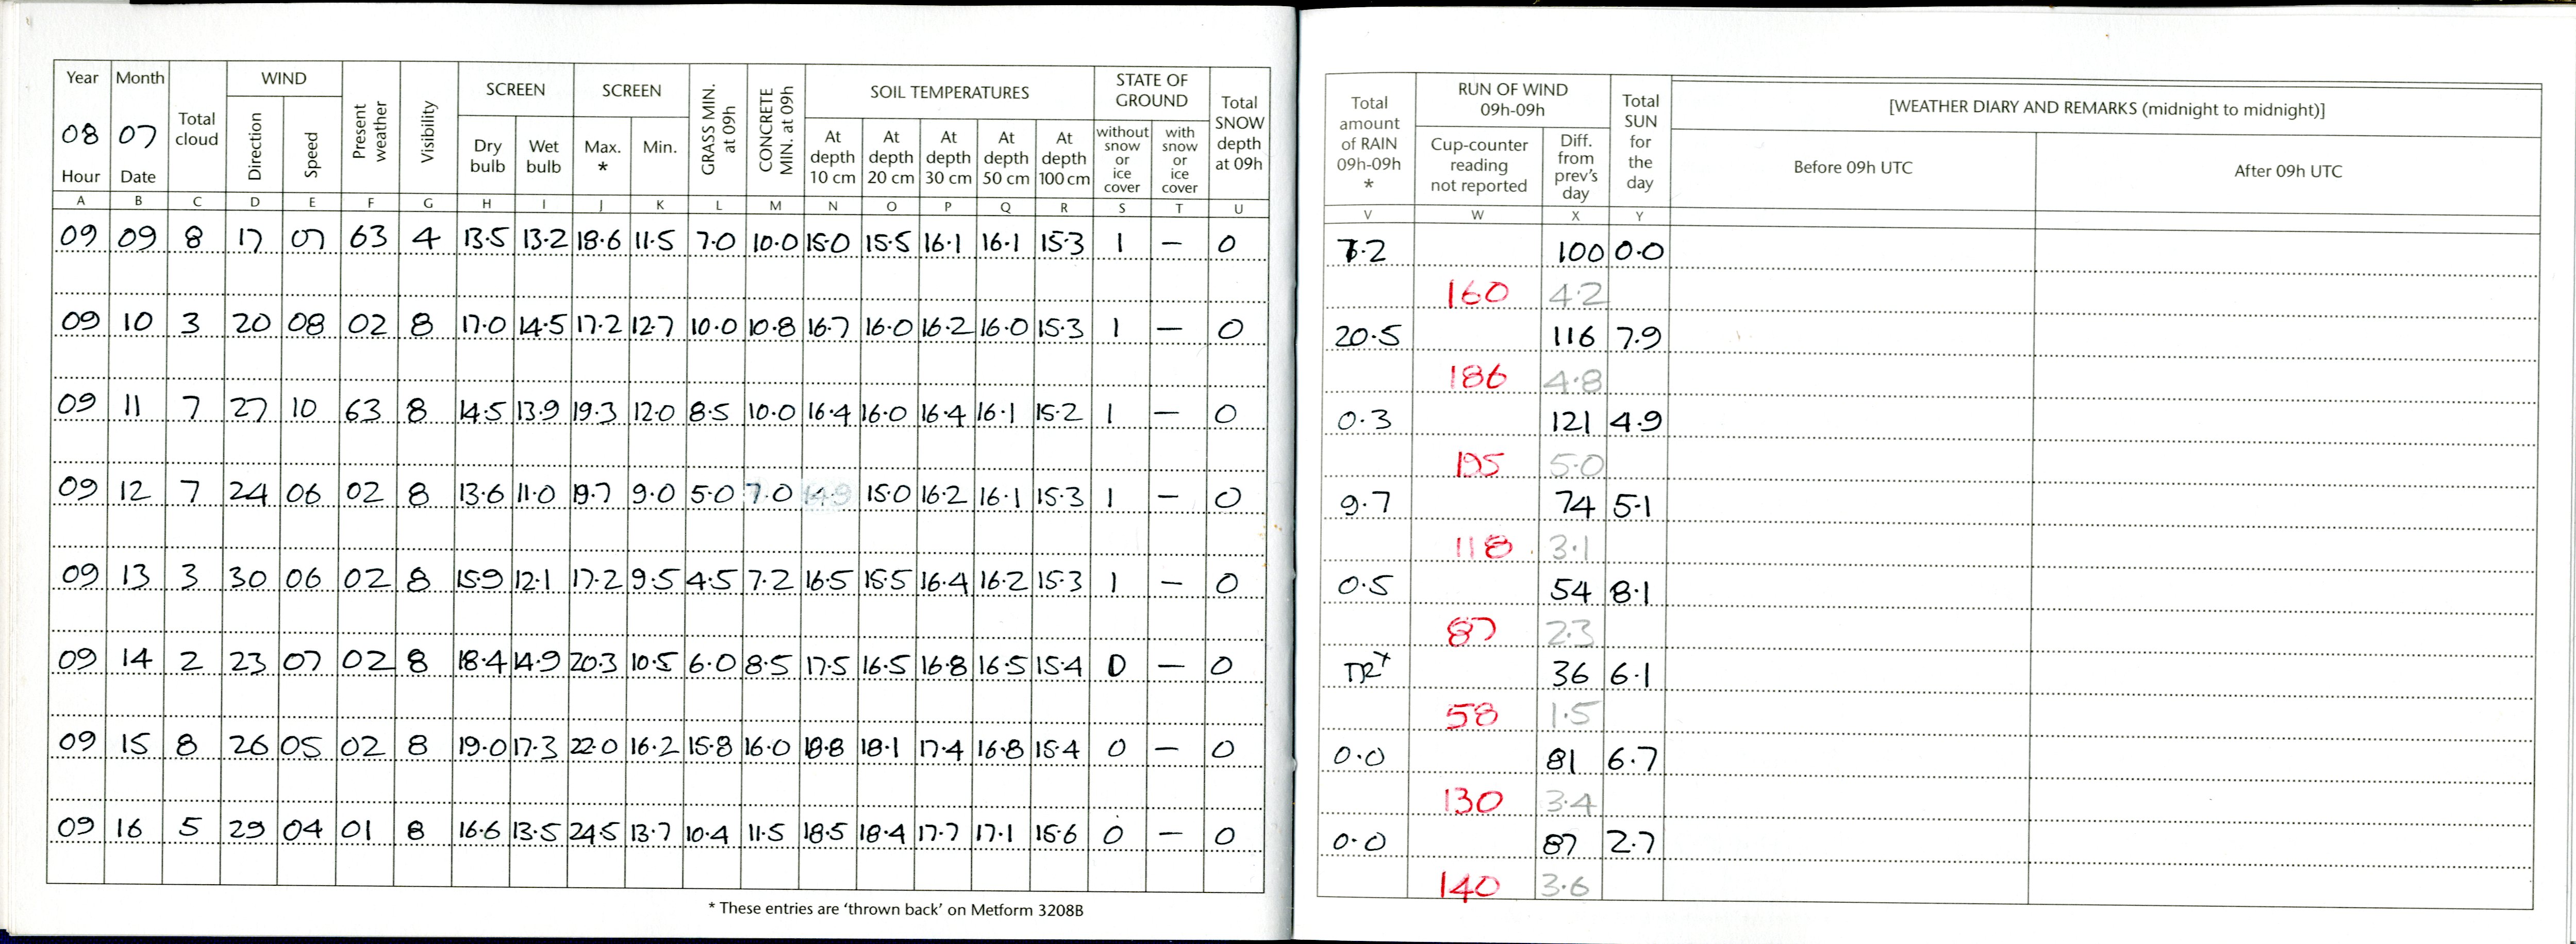 Year Month Total cloud WIND Present weather Visibility SCREEN SCREEN GRASS MIN. at 09h CONCRETE MIN. at 09h SOIL TEMPERATURES STATE OF GROUND Total SNOW depth at 09h
08 07 Direction Speed Dry bulb Wet bulb Max. * Min. At depth 10 cm At depth 20 cm At depth 30 cm At depth 50 cm At depth 100 cm without snow or ice cover with snow or ice cover
Hour Date
A B C D E F G H I J K L M N O P Q R S T U
09 09 8 17 07 63 4 13.5 13.2 18.6 11.5 7.0 10.0 15.0 15.5 16.1 16.1 15.3 1 — 0
09 10 3 20 08 02 8 17.0 14.5 17.2 12.7 10.0 10.8 16.7 16.0 16.2 16.0 15.3 1 — 0
09 11 7 27 10 63 8 14.5 13.9 19.3 12.0 8.5 10.0 16.4 16.0 16.4 16.1 15.2 1 — 0
09 12 7 24 06 02 8 13.6 11.0 19.7 9.0 5.0 7.0 14.9 15.0 16.2 16.1 15.3 1 — 0
09 13 3 30 06 02 8 15.9 12.1 17.2 9.5 4.5 7.2 16.5 15.5 16.4 16.2 15.3 1 — 0
09 14 2 23 07 02 8 18.4 14.9 20.3 10.5 6.0 8.5 17.5 16.5 16.8 16.5 15.4 0 — 0
09 15 8 26 05 02 8 19.0 17.3 22.0 16.2 15.8 16.0 18.8 18.1 17.4 16.8 15.4 0 — 0
09 16 5 29 04 01 8 16.6 13.5 24.5 13.7 10.4 11.5 18.5 18.4 17.7 17.1 15.6 0 — 0
* These entries are ‘thrown back’ on Metform 3208B
Total amount of RAIN 09h-09h * RUN OF WIND 09h-09h Total SUN for the day [WEATHER DIARY AND REMARKS (midnight to midnight)]
Cup-counter reading not reported Diff. from prev's day Before 09h UTC After 09h UTC
V W X Y
7.2 100 0.0
160 4.2
20.5 116 7.9
186 4.8
0.3 121 4.9
195 5.0
9.7 74 5.1
118 3.1
0.5 54 8.1
87 2.3
TR+ 36 6.1
58 1.5
0.0 81 6.7
130 3.4
0.0 87 2.7
140 3.6